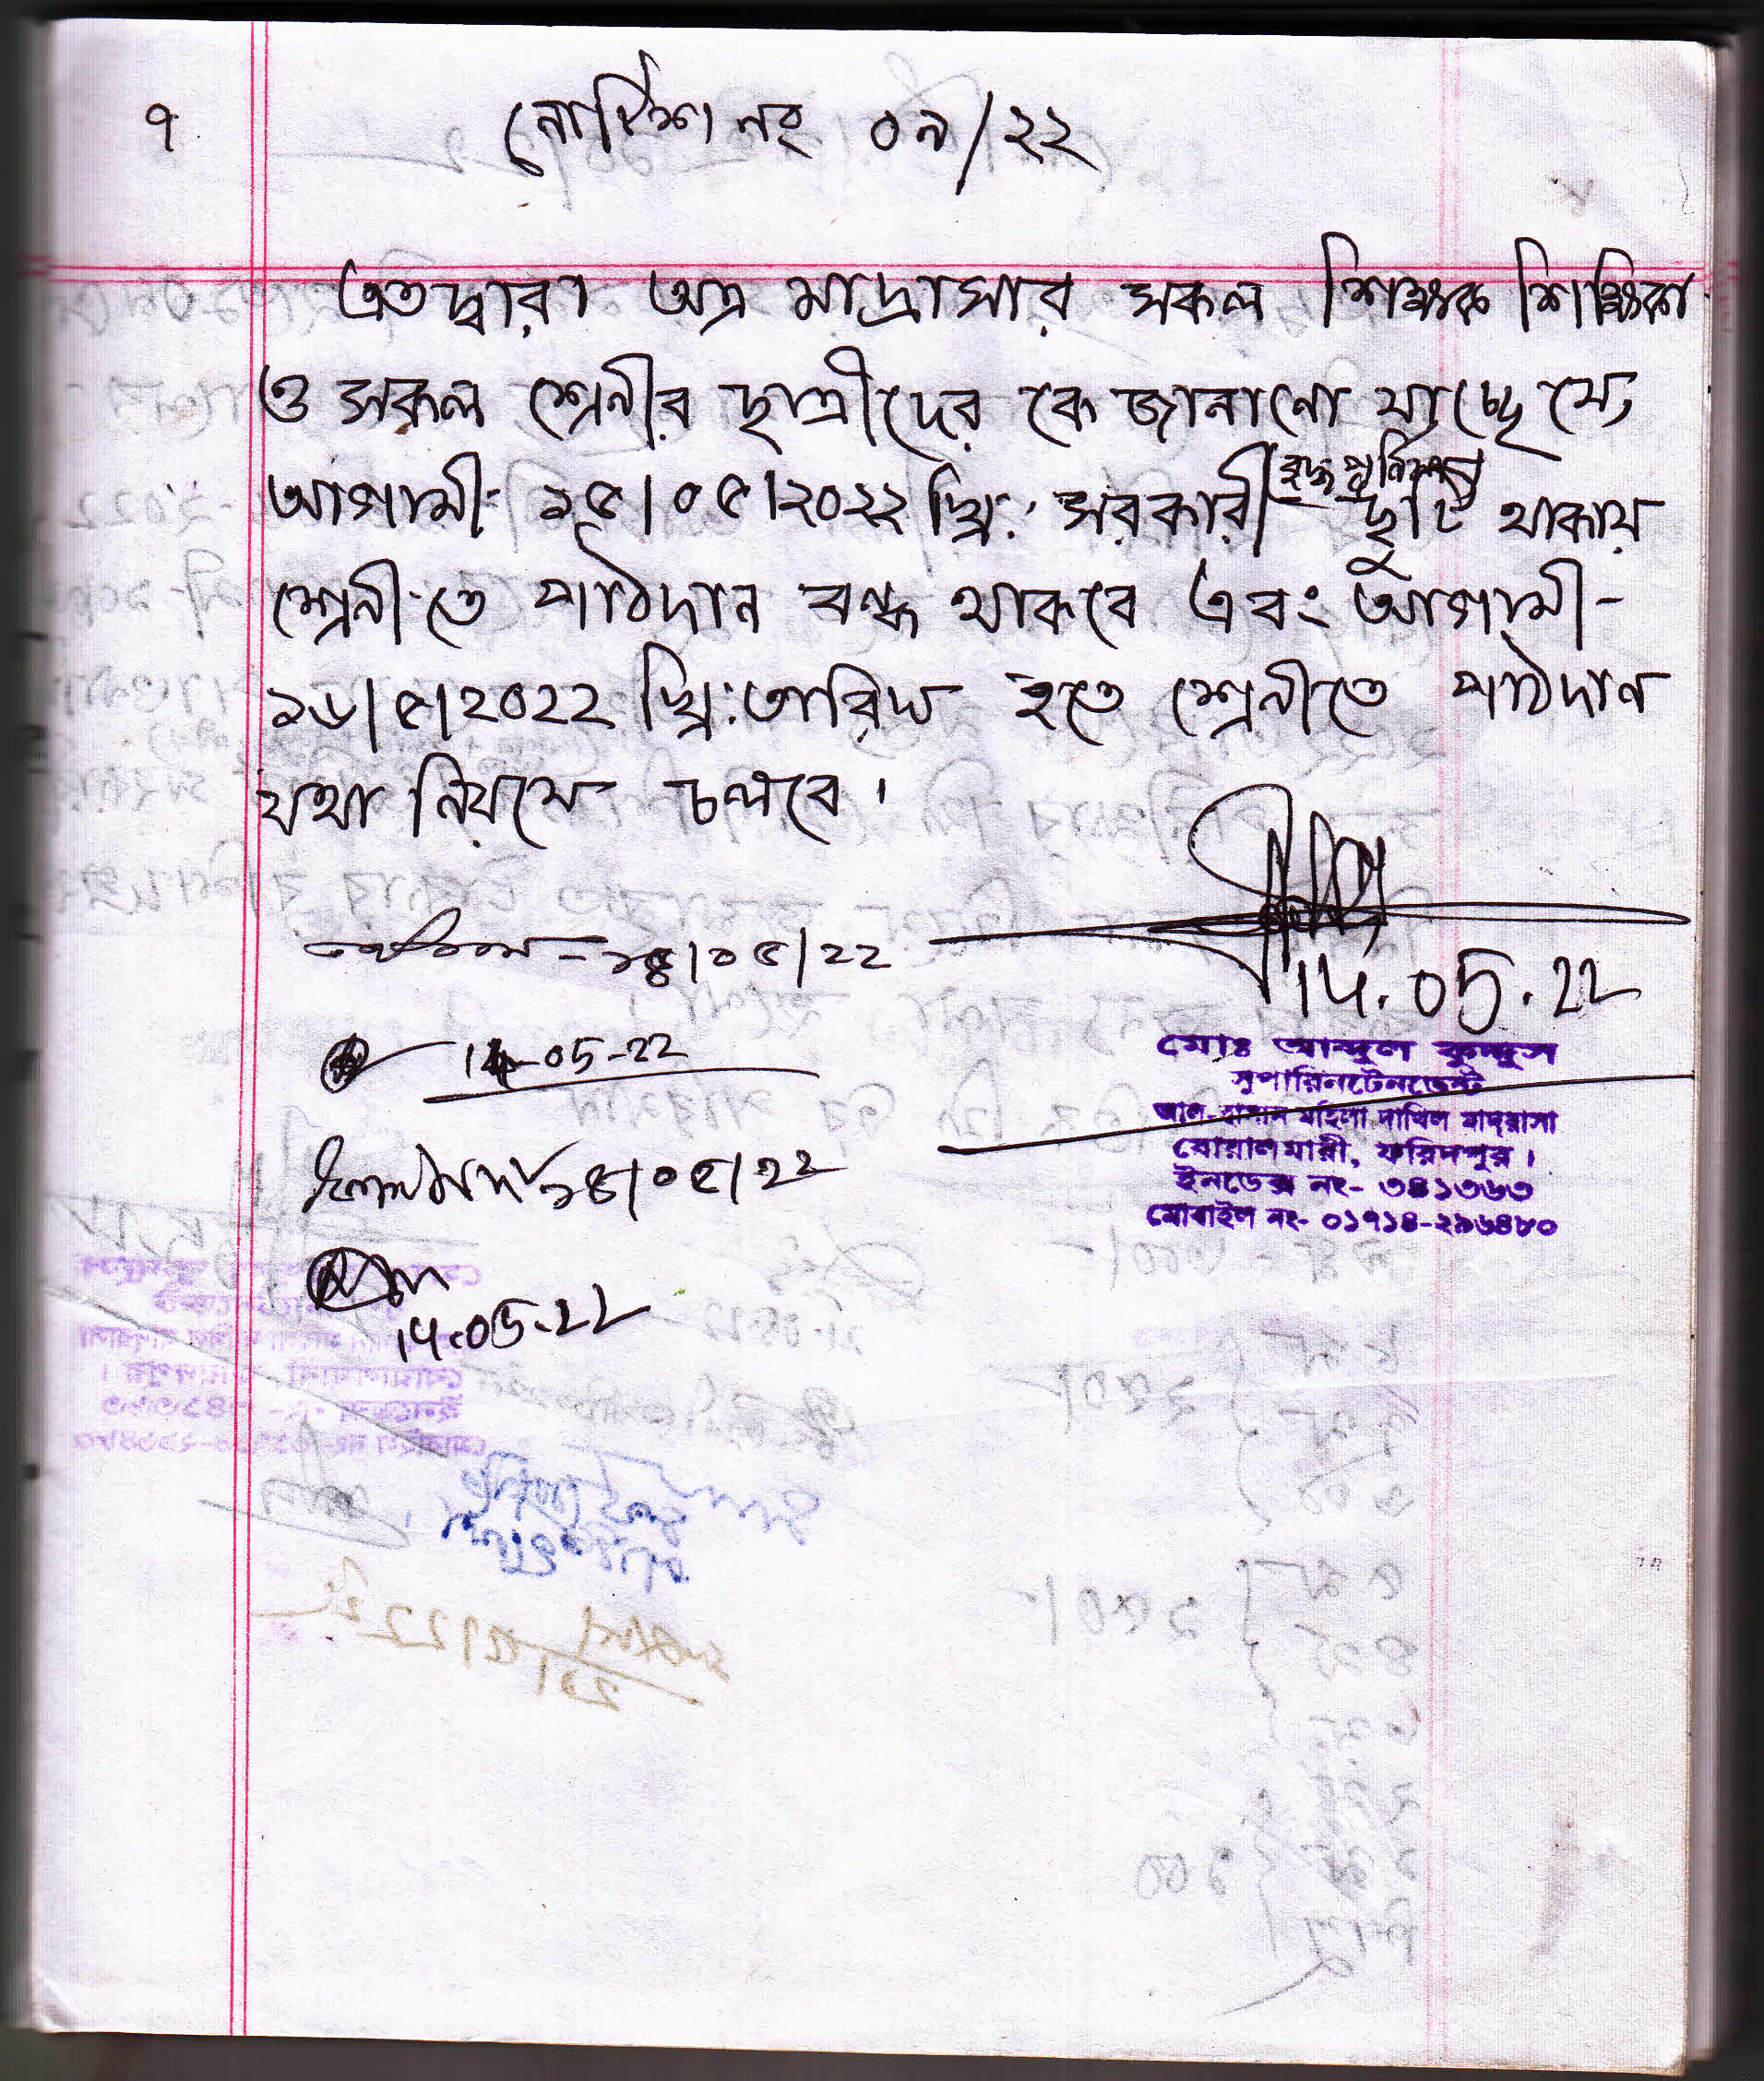 ৭
নোটিশ নং ০৯/২২
এতদ্বারা অত্র মাদ্রাসার সকল শিক্ষক শিক্ষিকা
ও সকল শ্রেনীর ছাত্রীদের কে জানানো যাচ্ছে যে,
আগামী ১৫/০৫/২০২২ খ্রি: সরকারী বুদ্ধ পূর্ণিমার ছুটি থাকায়
শ্রেনীতে পাঠদান বন্ধ থাকবে এবং আগামী-
১৬/৫/২০২২ খ্রি: তারিখ হতে শ্রেনীতে পাঠদান
যথা নিয়মে চলবে।
- ১৪/০৫/২২
14.05.22
14-05-22
১৪/০৫/২২
14.05.22
মোঃ আব্দুল কুদ্দুস
সুপারিনটেনডেন্ট
আল-হাসান মহিলা দাখিল মাদরাসা
বোয়ালমারী, ফরিদপুর।
ইনডেক্স নং- ৩৪১৩৬৩
মোবাইল নং- ০১৭১৪-২৯৬৪৮০